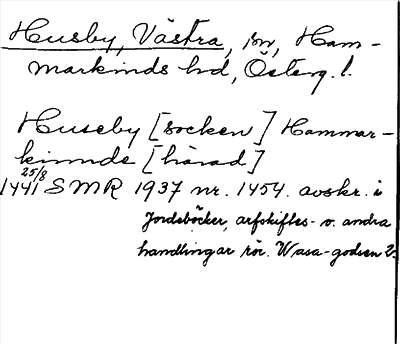 Husby, Västra, sn, Ham-
markinds hd, Österg. l.
Huseby [socken] Hammar-
kinnde [härad]
25/8
1441 SMR 1937 nr. 1454. avskr. i
Jordeböcker, arfskiftes- o. andra
handlingar rör. Wasa-godsen 2.